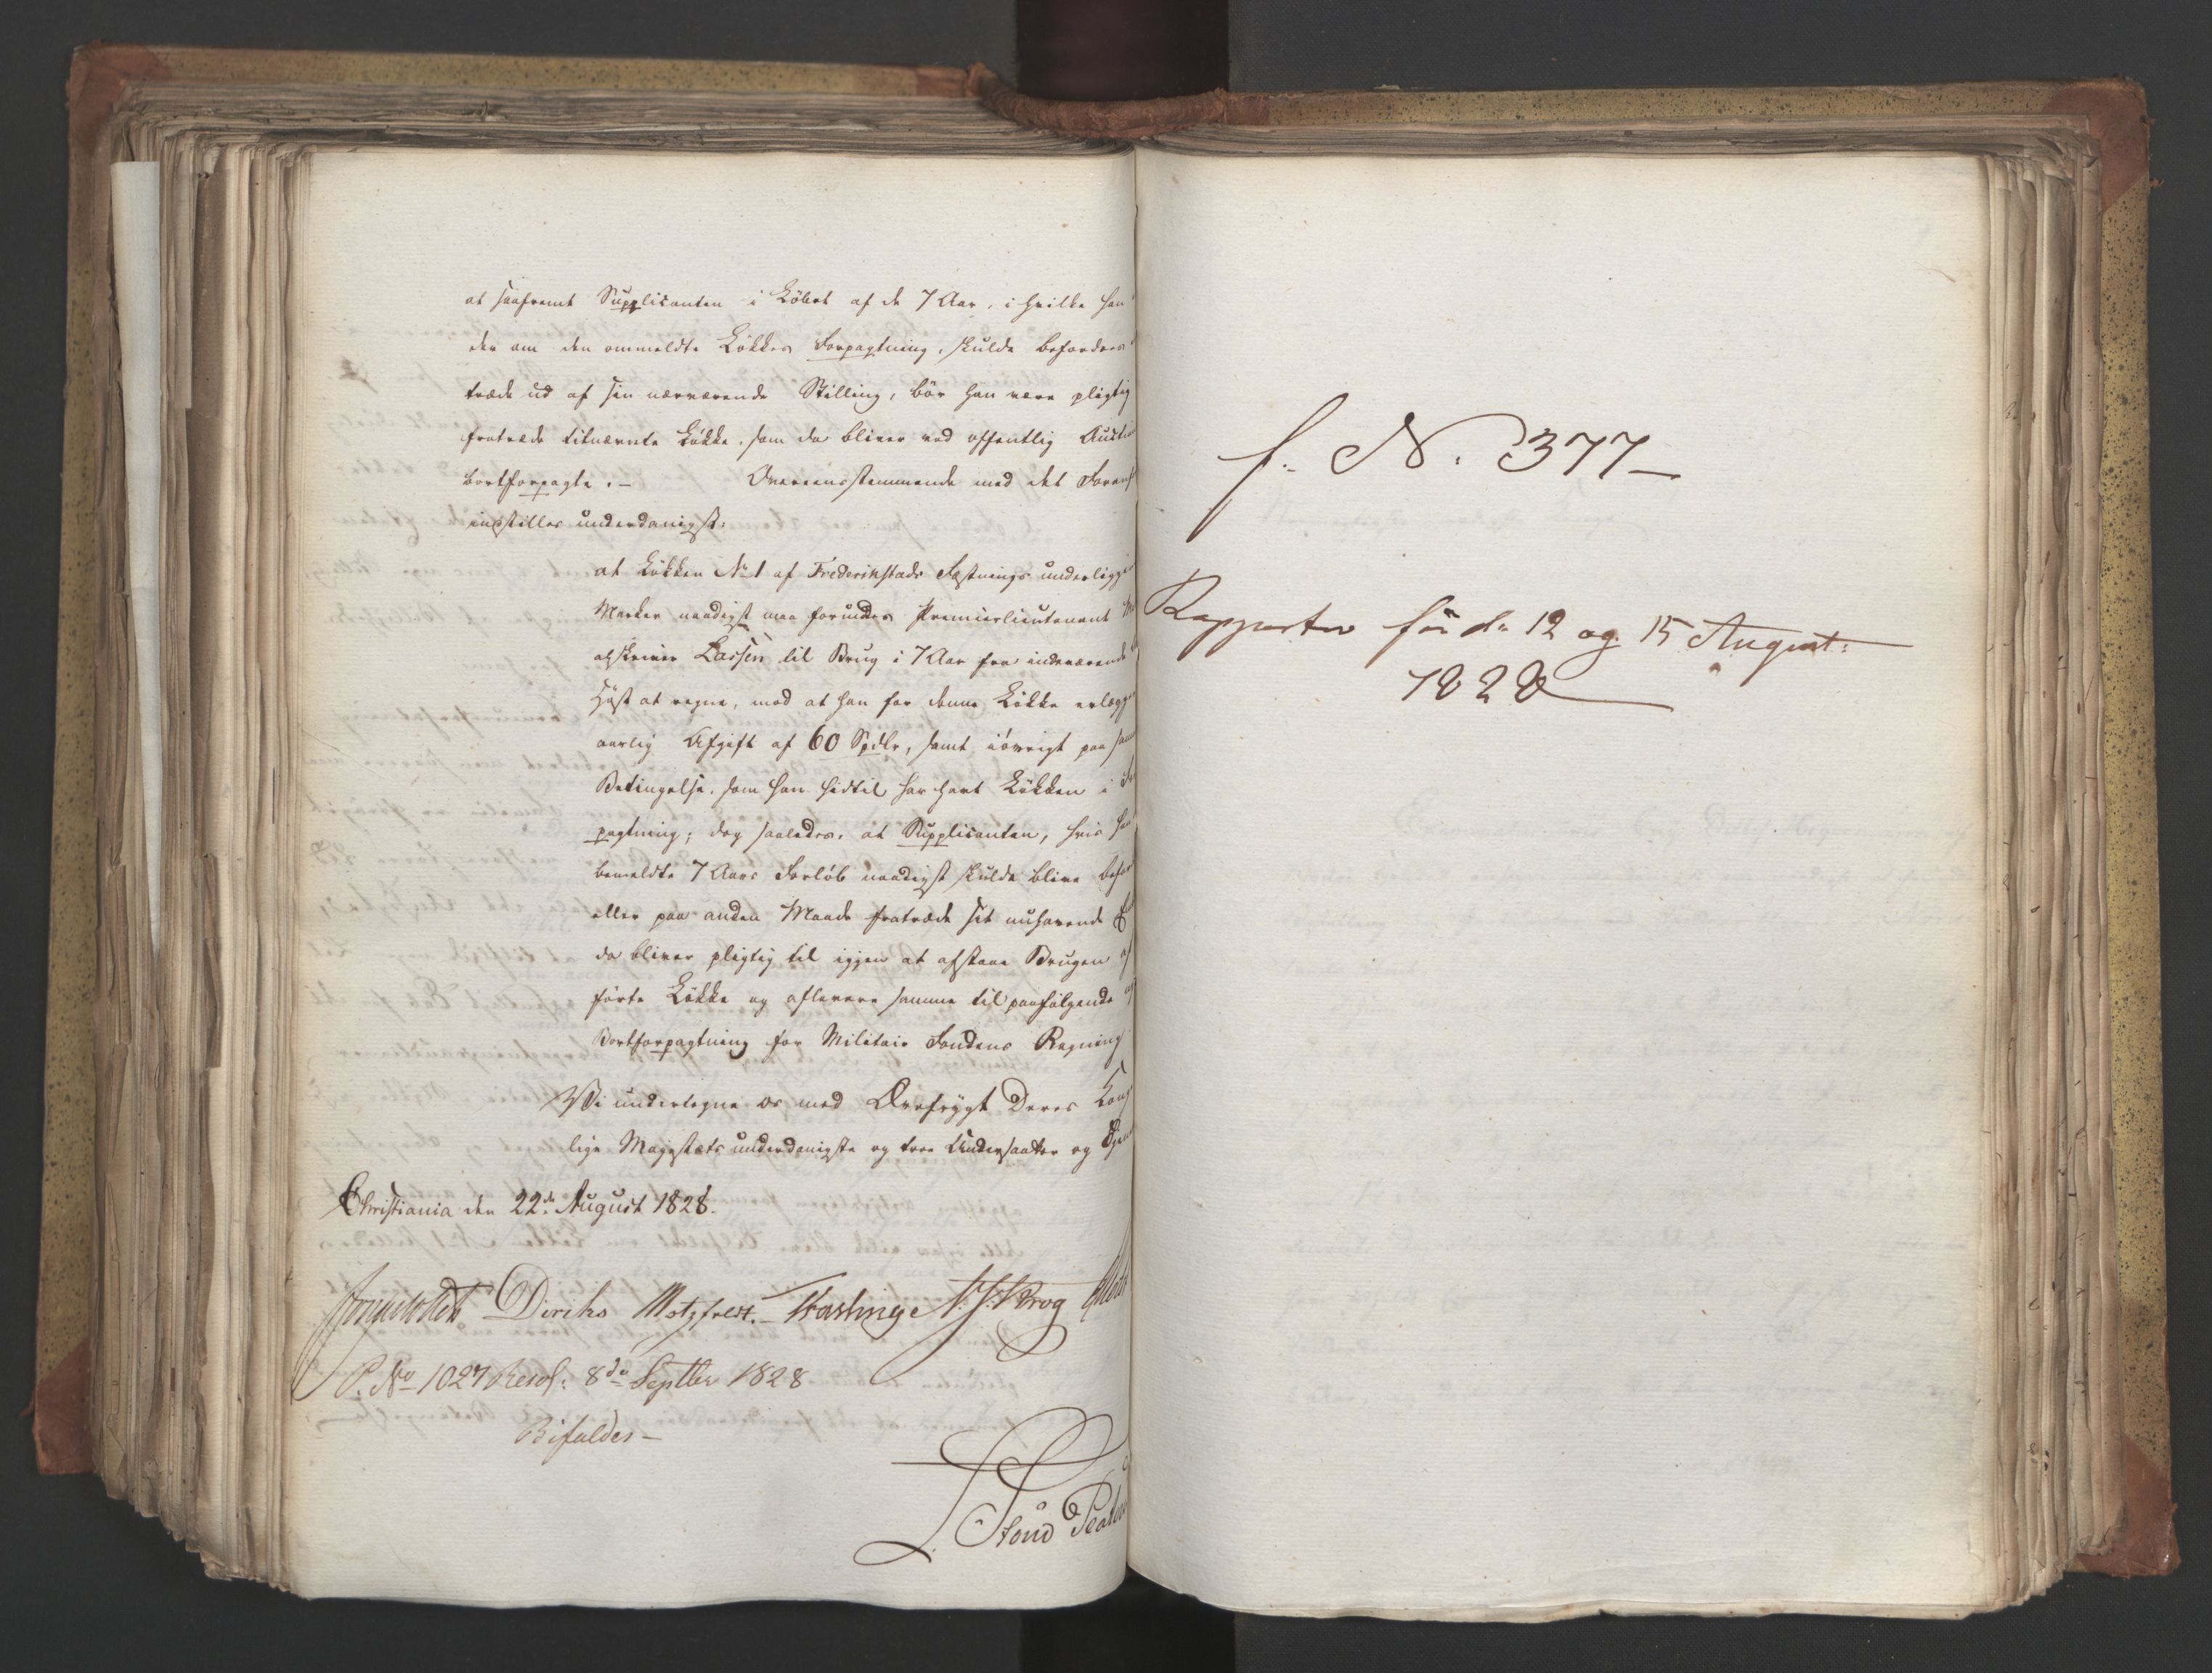 at saafremt Supplicanten i Løbet af de 7 Aar, i hvilke han
der om den ommeldte Løkkes Forpagtning, skulde befordres
træde ud af sin nærværende Stilling, bör han være pligtig
fratræde bemeldte Løkke, som da bliver ved offentlig Auction
bortforpagte.— Overeensstemmende med det Foranf
indstilles underdanigst:
at Løkken No 1 af Frederikstads Fæstnings underliggen
Marker naadigst maa forundes Premierlieutenant
Lassen til Brug i 7 Aar fra indeværende
Höst at regne, mod at han for denne Løkke erlægge
aarlig Afgift af 60 Spdlr, samt iövrigt paa sam
Betingelse, som han hidtil har havt Løkken i For
pagtning; dog saaledes, at Supplicanten, hvis han
bemeldte 7 Aars Forløb naadigst skulde blive befor
eller paa anden Maade fratræde sit nuhavende
da bliver pligtig til igjen at afstaae Brugen af
förte Løkke og aflevere samme til paafølgende
Bortforpagtning for Militair Fondens Regning
Vi undertegne os med Ærefrygt Deres Kong
lige Majestæts underdanigste og troe Undersaatter og Tjen
Christiania den 22de August 1828.
Diriks Motzfeldt. Fasting N. J. Krog
P. No 1027 Resol: 8de Septbr 1828
Bifaldes—
f. N. 377—
Rapporter for de 12 og 15 August:
1828